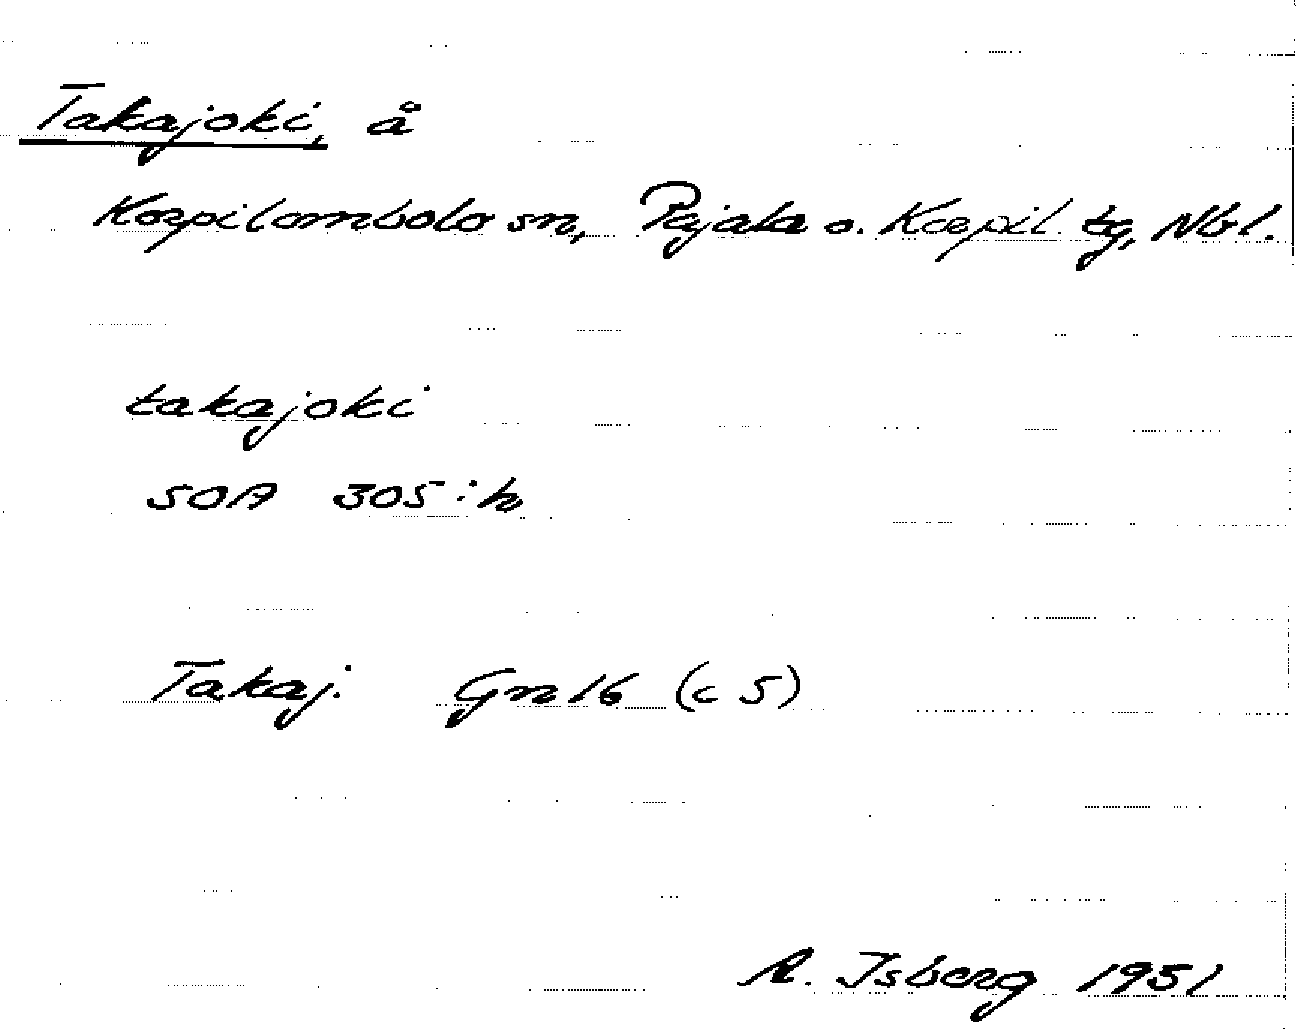 Takajoki, å
Korpilombolo sn, Pajala o. Korpil. tg, Nbl.
takajoki
SOA 305:h
Takaj. Gn 16 (c 5)
A. Isberg 1951